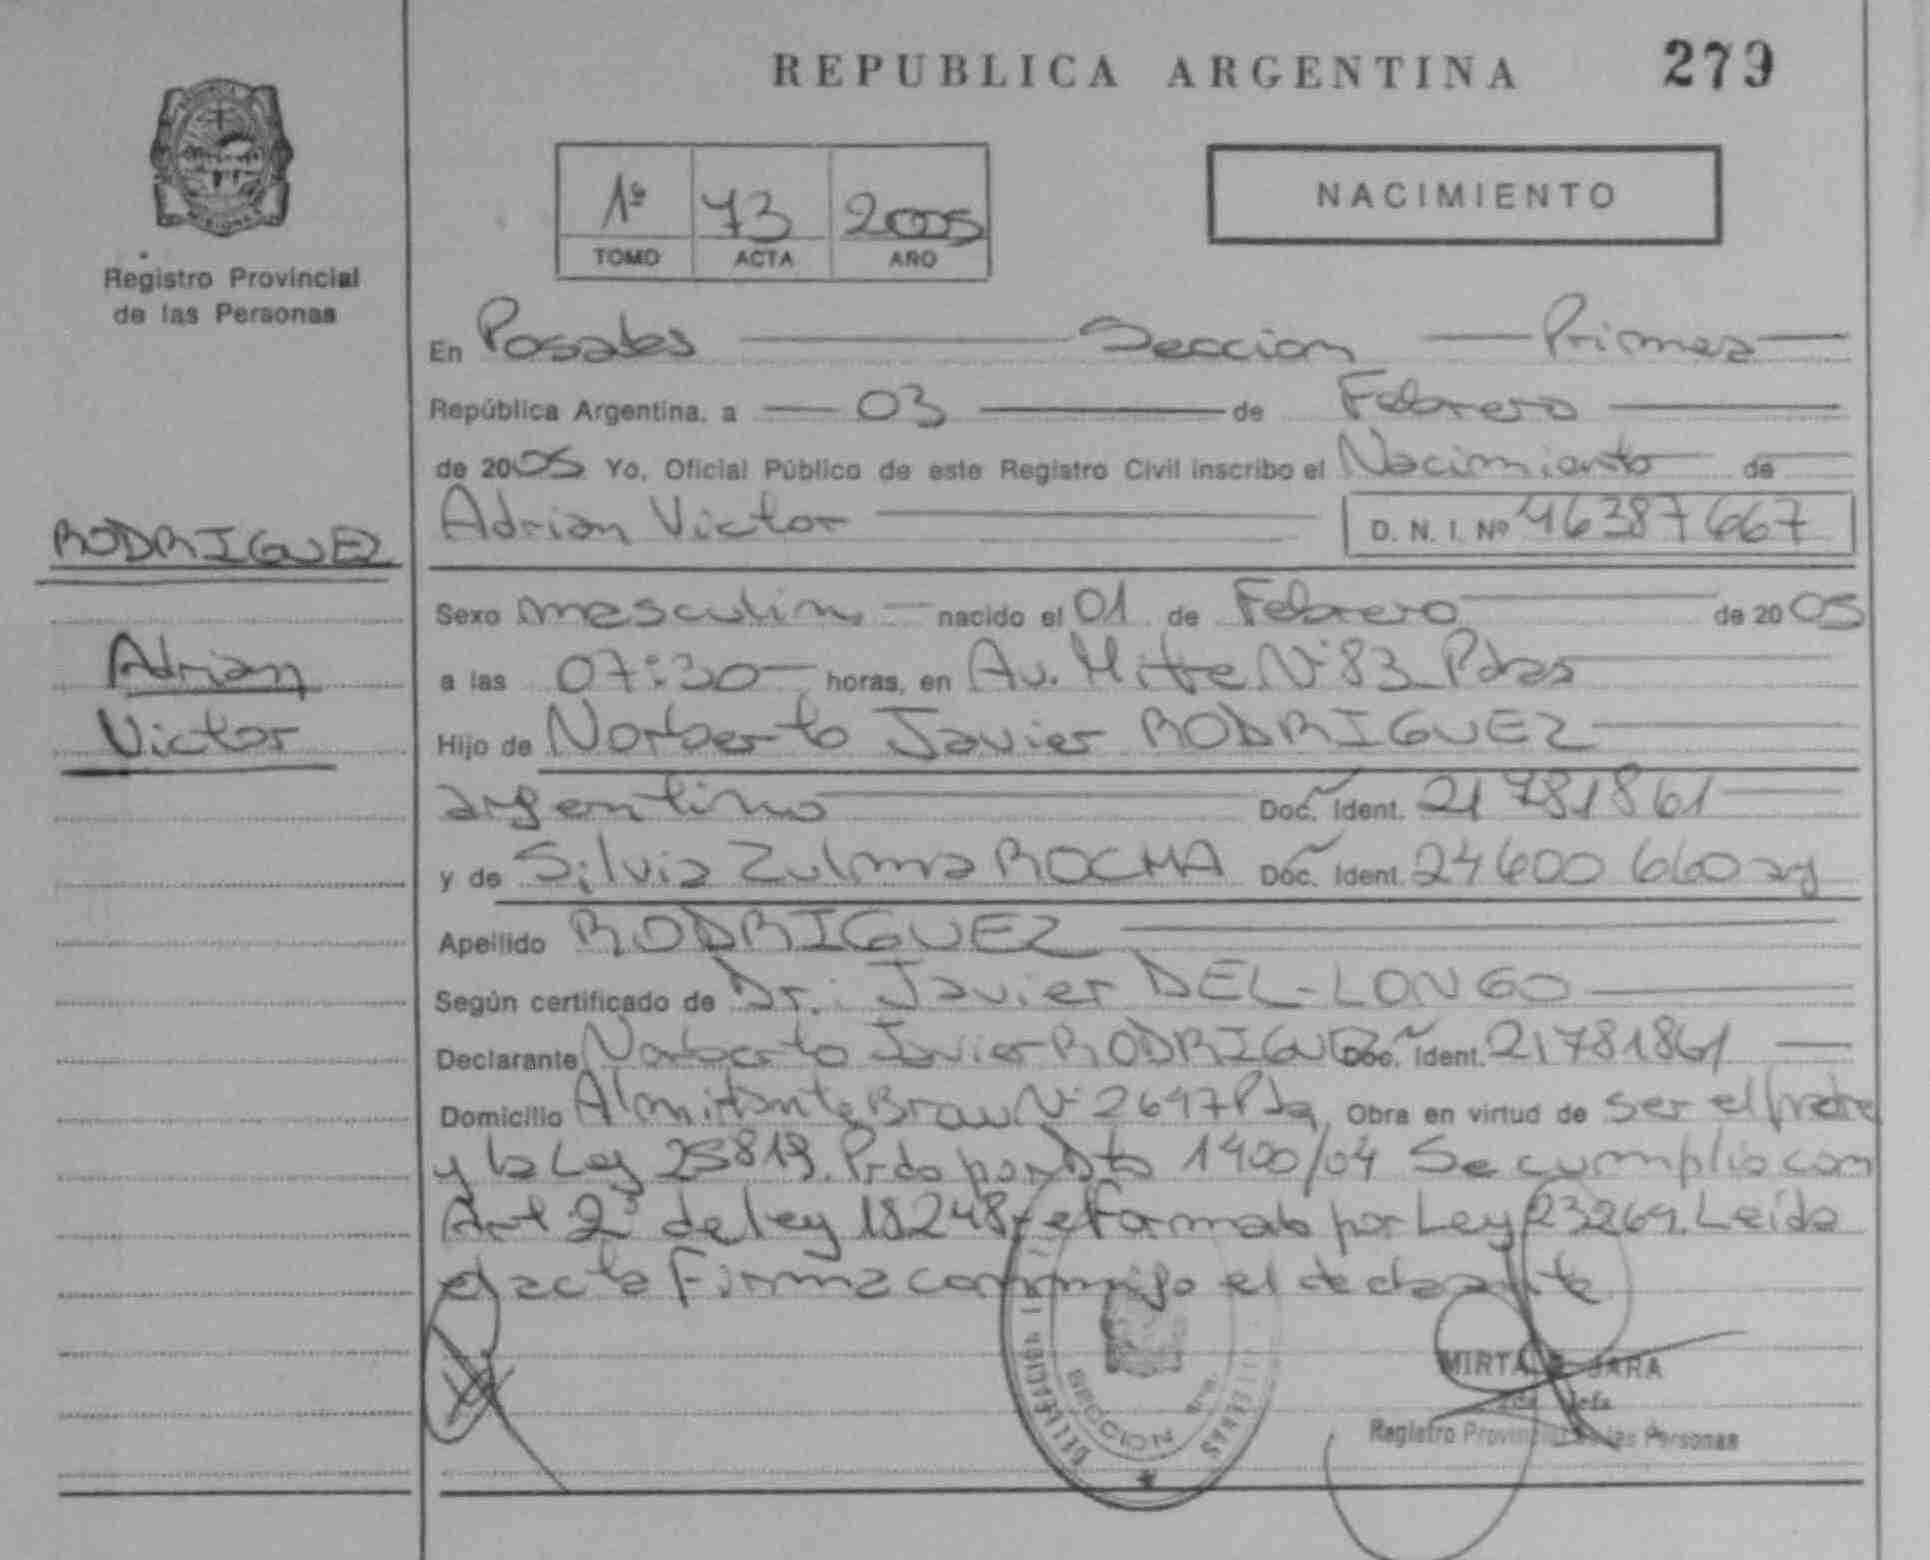 REPUBLICA ARGENTINA 279
1º 73 2005
TOMO ACTA AÑO
NACIMIENTO
Registro Provincial
de las Personas
En Posadas Seccion Primera
República Argentina, a 03 de Febrero
de 2005 Yo, Oficial Público de este Registro Civil inscribo el Nacimiento de
Adrian Victor D. N. I. Nº 46387667
RODRIGUEZ
Adrian
Victor
Sexo masculino nacido el 01 de Febrero de 2005
a las 07:30 horas, en Av. Mitre Nº 83 Pdas
Hijo de Norberto Javier RODRIGUEZ
argentino Doc. Ident. 21781861
y de Silvia Zulma ROCHA Doc. Ident. 24600660 arg
Apellido RODRIGUEZ
Según certificado de Dr. Javier DEL-LONGO
Declarante Norberto Javier RODRIGUEZ Doc. Ident. 21781861
Domicilio Almirante Brow Nº 2647 Pda Obra en virtud de ser el padre
y la Ley 25819. Prda por Dto 1400/04 Se cumplio con
Art 2º de ley 18248 reformada por Ley 23264. Leida
el acta Firma conmigo el declarante
SECCION 1ra.
MIRTA JARA
Jefa
Registro Provincial de las Personas